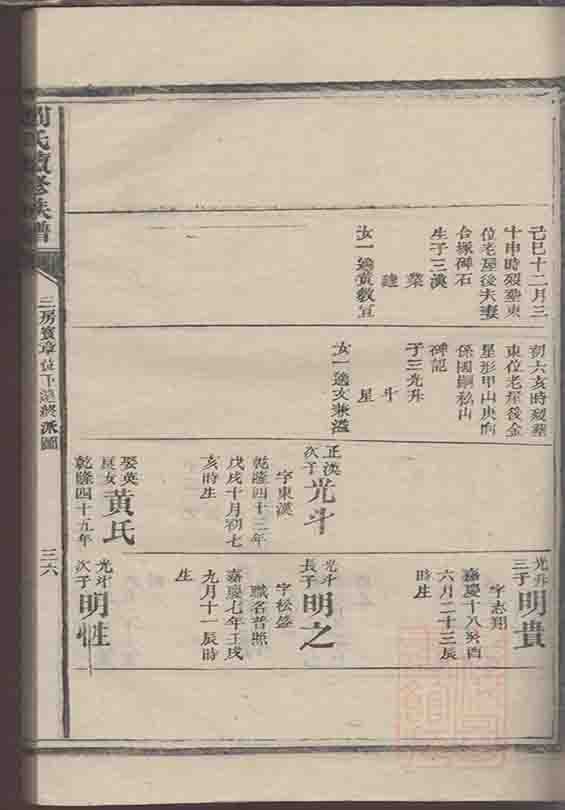 己巳十二月三
十申時殁葬東
位老屋後夫妻
合塚碑石
生子三漢
葉
達
女一適黄敎宣
初六亥時殁葬
東位老屋後金
星形甲山庚向
係國嗣私山
碑記
子三光升
斗
星
女一適文兼溢
正漢次子光斗
字東漢
乾隆四十三年
戊戌十月初七
亥時生
娶英展女黄氏
乾隆四十五年
光升三子明貴
字志翔
嘉慶十八癸酉
六月二十三辰
時生
光斗長子明之
字松盛
職名普照
嘉慶七年壬戌
九月十一辰時
生
光斗次子明性
氏續修族譜
三房賓章位下達終派圖
三六